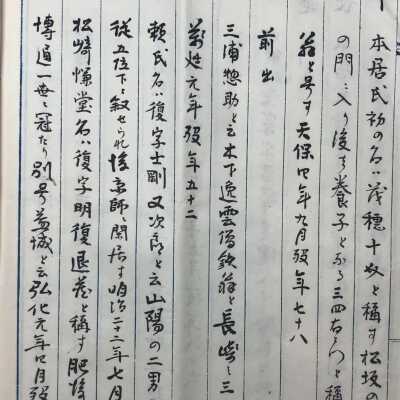 本居氏初の名ハ茂穂十奴と稱す松坂の
の門ニ入り後る養子となる三四右ヱ门と稱
翁と号す天保四年九月歿年七十八
前出
三浦惣助と云木下逸雲僧鉄翁と長崎三
萬姓元年歿年五十二
頼氏名ハ復字士剛又次郎と云山陽の二男
従五位下ニ叙せられ後京師ニ閑居す明治二十二年七月
松崎慊堂名ハ復字明復退蔵と稱す肥後
博通一世ニ冠たり別号益城と云弘化元年四月歿